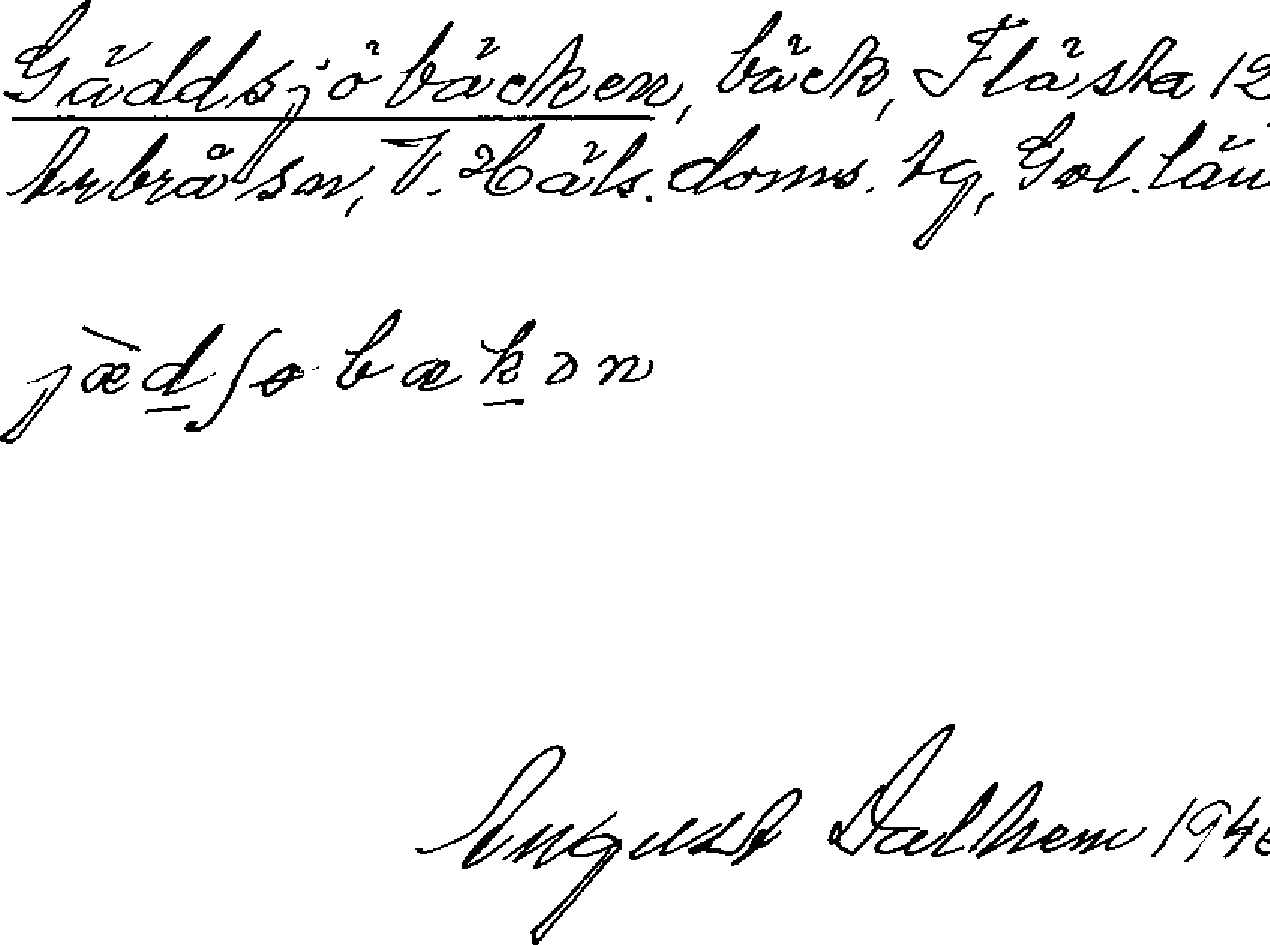 Gäddsjöbäcken, bäck, Flästa 12
Arbrå sn, V. Häls. doms. tg, Gvl. län
jæ̀d̲ʃøbæk̲ən
August Dalhem 194